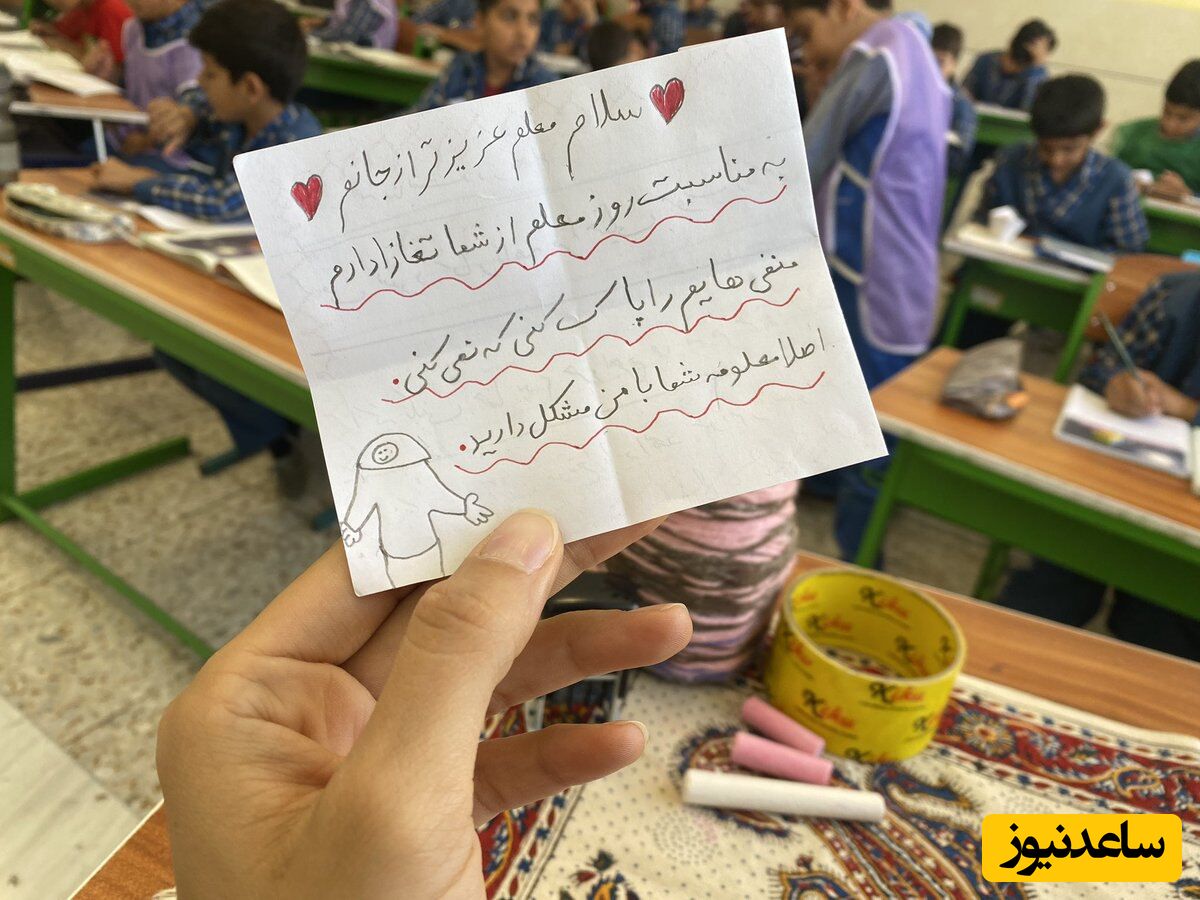 سلام معلم عزیز تر از جانم
به مناسبت روز معلم از شما تغازا دارم
منفی هایم را پاک کنی که نمی کنی.
اصلا معلومه شما با من مشکل دارید.
ساعدنیوز